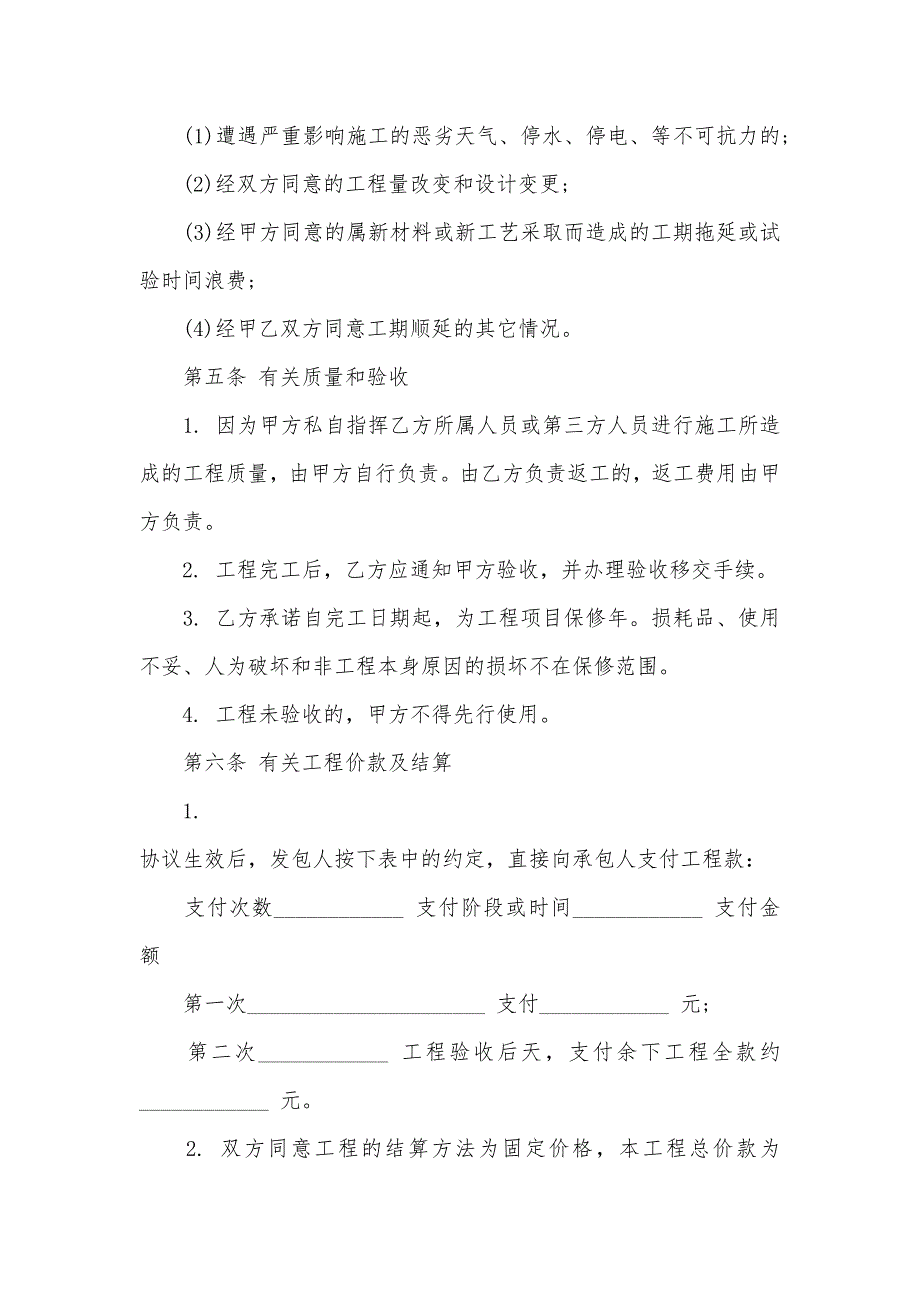 (1)遭遇严重影响施工的恶劣天气、停水、停电、等不可抗力的;
(2)经双方同意的工程量改变和设计变更;
(3)经甲方同意的属新材料或新工艺采取而造成的工期拖延或试
验时间浪费;
(4)经甲乙双方同意工期顺延的其它情况。
第五条 有关质量和验收
1. 因为甲方私自指挥乙方所属人员或第三方人员进行施工所造
成的工程质量，由甲方自行负责。由乙方负责返工的，返工费用由甲
方负责。
2. 工程完工后，乙方应通知甲方验收，并办理验收移交手续。
3. 乙方承诺自完工日期起，为工程项目保修年。损耗品、使用
不妥、人为破坏和非工程本身原因的损坏不在保修范围。
4. 工程未验收的，甲方不得先行使用。
第六条 有关工程价款及结算
1.
协议生效后，发包人按下表中的约定，直接向承包人支付工程款：
支付次数____________ 支付阶段或时间____________ 支付金
额
第一次______________________ 支付____________ 元;
第二次____________ 工程验收后天，支付余下工程全款约
____________ 元。
2. 双方同意工程的结算方法为固定价格，本工程总价款为